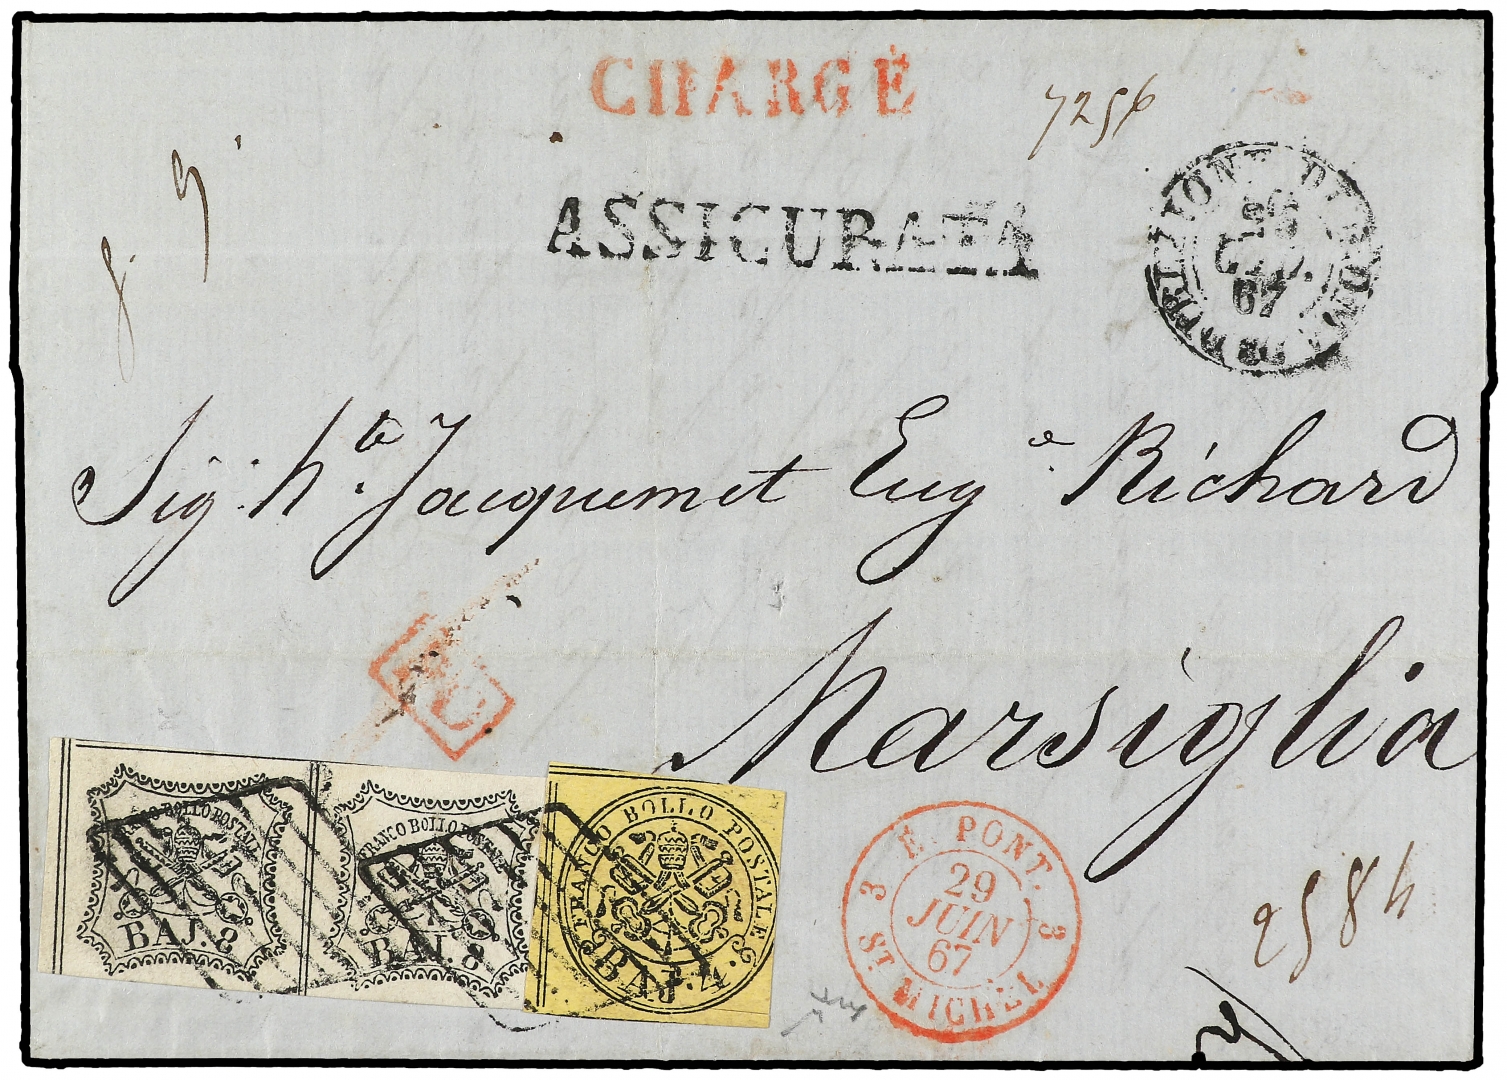 CHARGÉ
7256
ASSICURATA
DIREZIONE DI ROMA
26
GIU.
67
Sig. h.te Jacquemet Eug.e Richard
Marsiglia
PD
FRANCO BOLLO POSTALE
BAJ. 8
FRANCO BOLLO POSTALE
BAJ. 8
FRANCO BOLLO POSTALE
BAJ. 4
E. PONT. 3
29
JUIN
67
3 ST MICHEL
2584